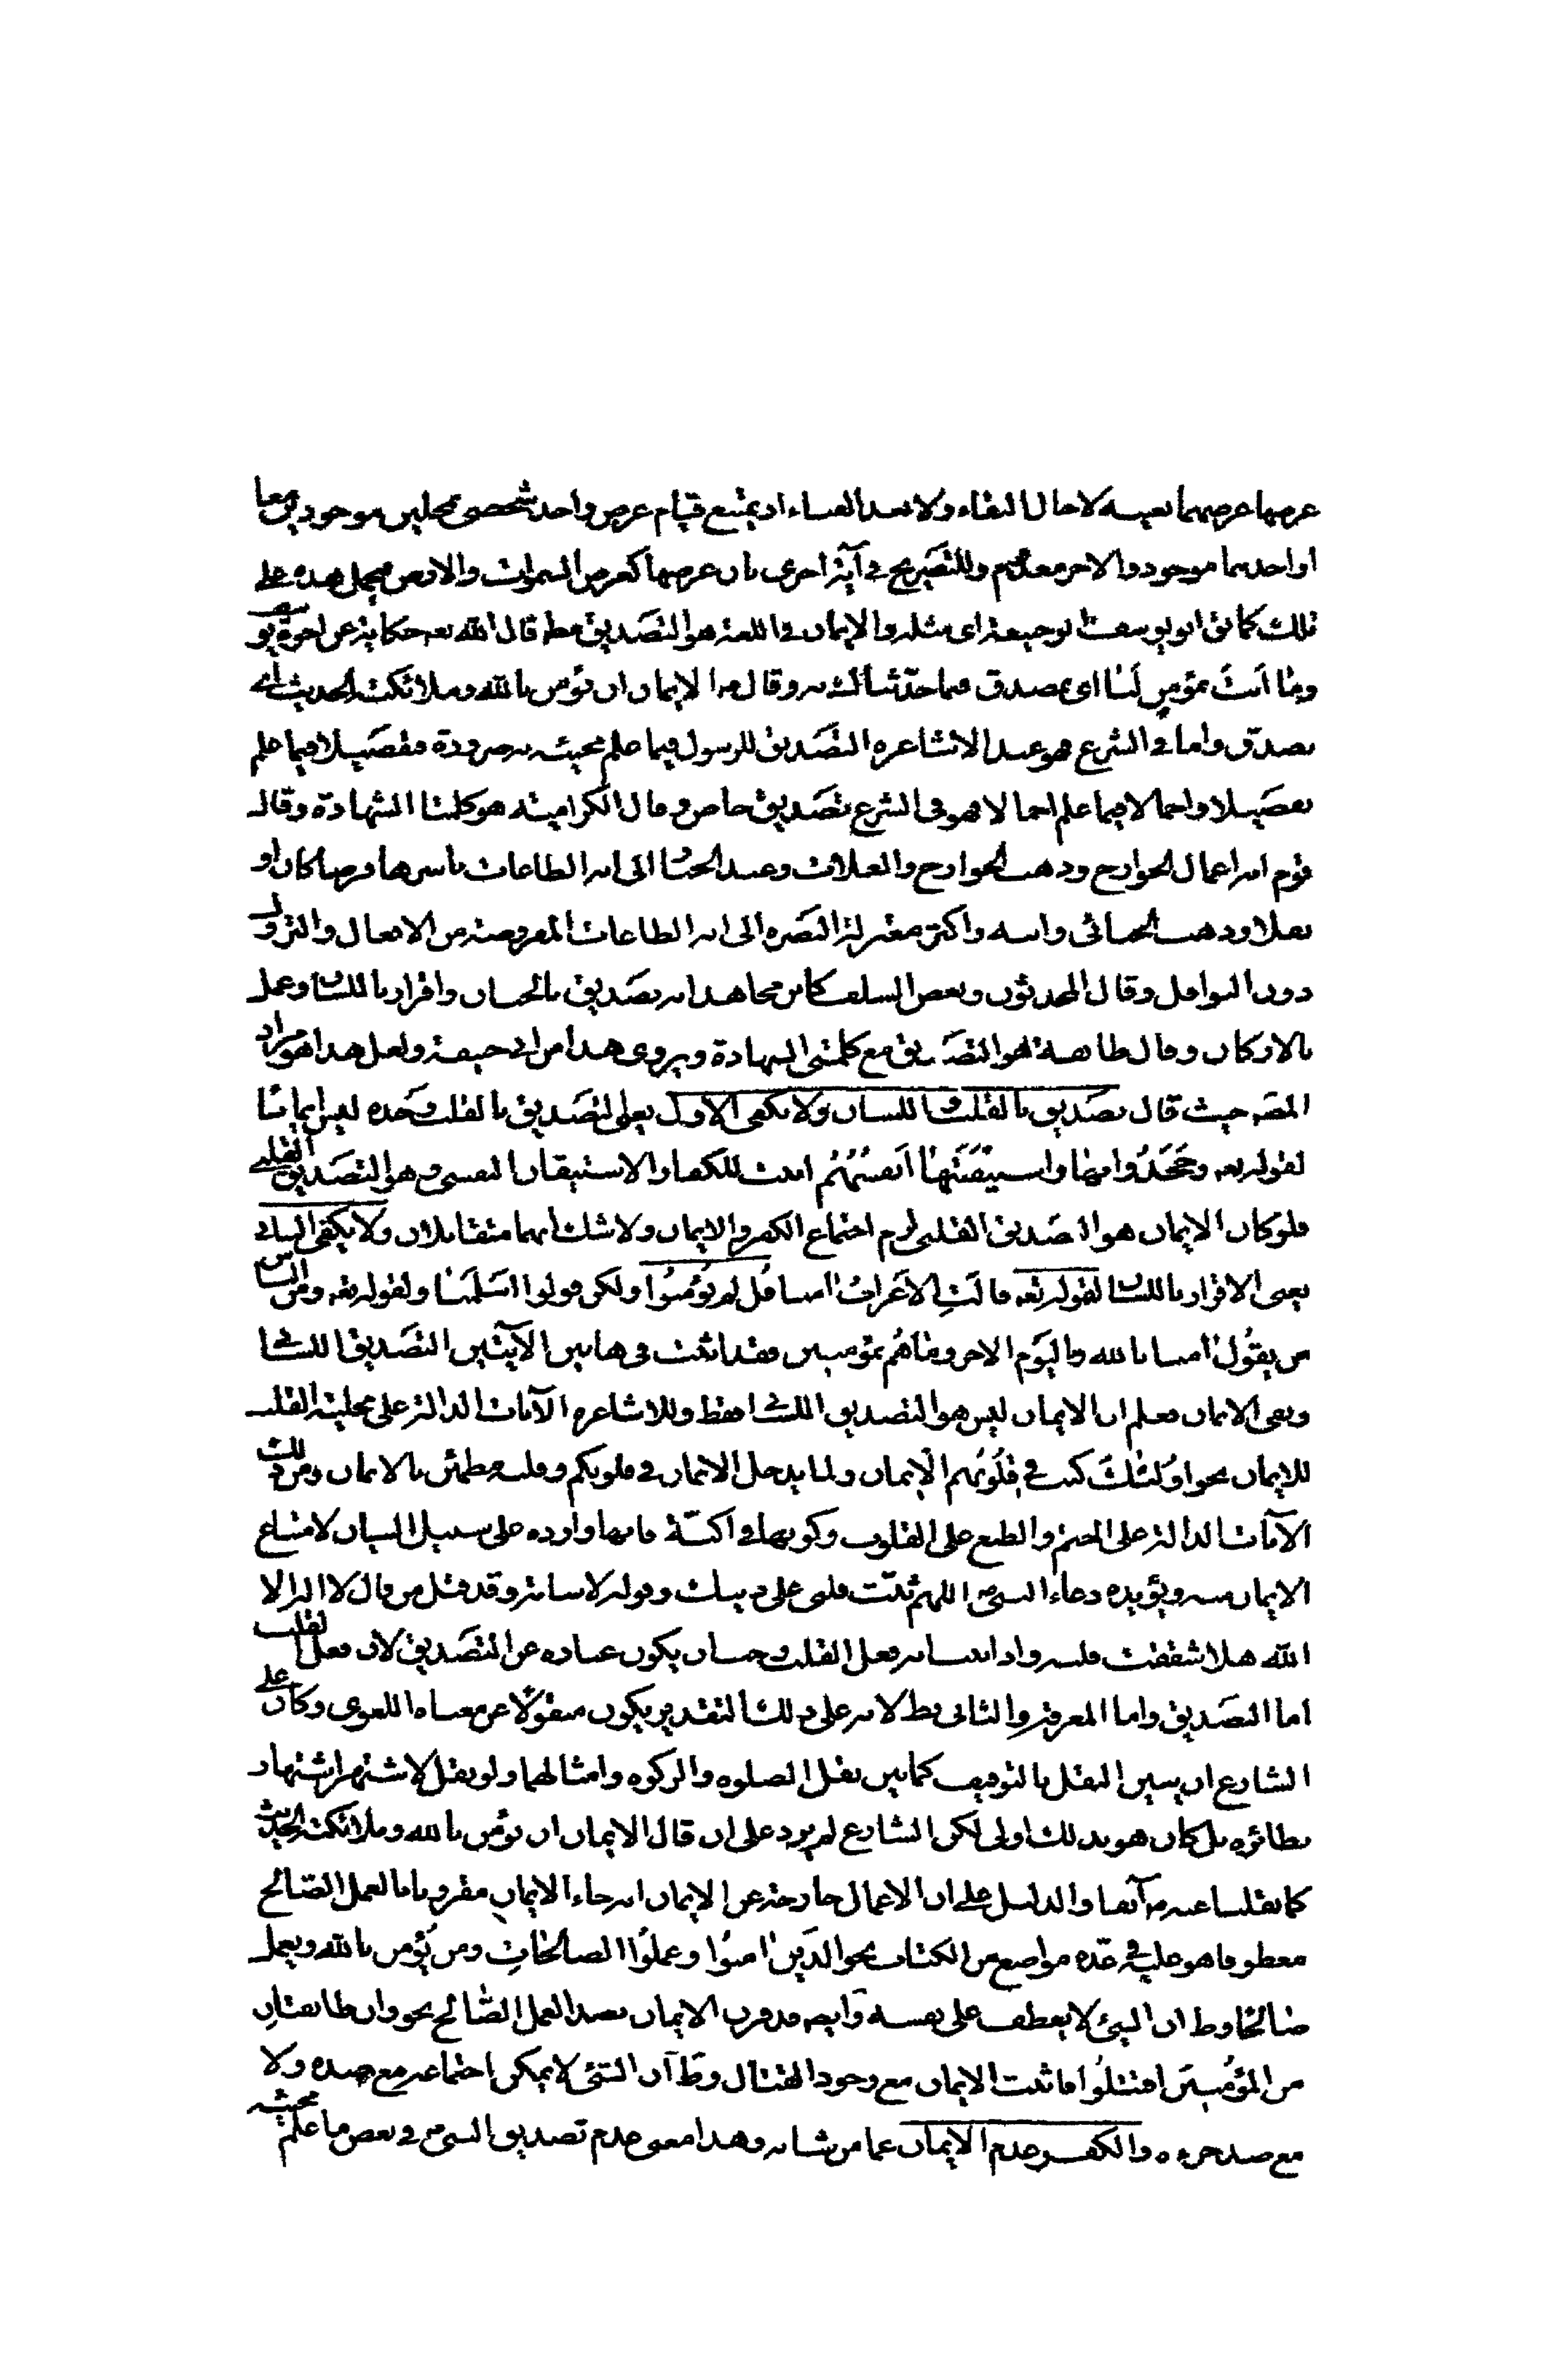 عرضها عرضهما بعينه لا حال البقاء ولا بعد الفناء اذ يمتنع قيام عرض واحد شخصى بمحلين موجودين معا
او احدهما موجود والاخر معدوم وللتصريح في آية اخرى بان عرضها كعرض السموات والارض فيحمل هذه على
تلك كما يق ابو يوسف ابو حنيفة اى مثله والايمان في اللغة هو التصديق مط قال الله تعه حكاية عن اخوة يوسف
وما انت بمؤمن لنا اى بمصدق فيما حدثناك به وقال م الايمان ان تؤمن بالله وملائكته الحديث اى
تصدق واما في الشرع فهو عند الاشاعره التصديق للرسول فيما علم مجيئه به ضرورة فتفصيلا فيما علم
تفصيلا واجمالا فيما علم اجمالا فهو في الشرع تصديق خاص وقال الكرامية هو كلمتا الشهادة وقال
قوم انه اعمال الجوارح وذهب الخوارج والعلاف وعبد الجبار الى انه الطاعات باسرها فرضا كان او
نفلا وذهب الجبائى وابنه واكثر معتزلة البصره الى انه الطاعات المفروضة من الافعال والتروك
دون النوافل وقال المحدثون وبعض السلف كابن مجاهد انه تصديق بالجنان واقرار باللسان وعمل
بالاركان وقال طائفة هو التصديق مع كلمتى الشهادة ويروى هذا من ابى حنيفة ولعل هذا هو مراد
المصه حيث قال تصديق بالقلب واللسان ولا يكفى الاول يعنى التصديق بالقلب وحده ليس ايمانا
لقوله تعه وجحدوا بها واستيقنتها انفسهم اثبت للكفار الاستيقان النفسى وهو التصديق القلبى
فلو كان الايمان هو التصديق القلبى لزم اجتماع الكفر والايمان ولا شك انهما متقابلان ولا يكفى الثانى
يعنى الاقرار باللسان لقوله تعه قالت الاعراب امنا قل لم تؤمنوا ولكن قولوا اسلمنا ولقوله تعه ومن الناس
من يقول امنا بالله وباليوم الاخر وما هم بمؤمنين فقد اثبت في هاتين الآيتين التصديق اللسانى
ونفى الايمان فعلم ان الايمان ليس هو التصديق اللسانى فقط وللاشاعره الآيات الدالة على محلية القلب
للايمان نحو اولئك كتب في قلوبهم الايمان ولما يدخل الايمان في قلوبكم وقلبه مطمئن بالايمان ومن ذلك
الآيات الدالة على الختم والطبع على القلوب وكونها في اكنة فانها وارده على سبيل البيان لامتناع
الايمان منه ويؤيده دعاء النبى ص اللهم ثبت قلبى على دينك وقوله لاسامة وقد قتل من قال لا اله الا
الله هلا شققت قلبه واذا ثبت انه فعل القلب وجب ان يكون عباره عن التصديق لان فعل القلب
اما التصديق واما المعرفة والثانى بط لانه على ذلك التقدير يكون منقولا عن معناه اللغوى وكان على
الشارع ان يبين النقل بالتوقيف كما بين نقل الصلوه والزكوه وامثالهما ولو نقل لاشتهر اشتهار
نظائره بل كان هو بذلك اولى لكن الشارع لم يزد على ان قال الايمان ان تؤمن بالله وملائكته الحديث
كما نقلنا عنه م آنفا والدليل على ان الاعمال خارجة عن الايمان انه جاء الايمان مقرونا بالعمل الصالح
معطوفا هو عليه في عدة مواضع من الكتاب نحو الذين امنوا وعملوا الصالحات ومن يؤمن بالله ويعمل
صالحا وظ ان الشئ لا يعطف على نفسه وايضه قد قرن الايمان بضد العمل الصالح نحو وان طائفتان
من المؤمنين اقتتلوا فاثبت الايمان مع وجود القتال وظ ان الشئ لا يمكن اجتماعه مع ضده ولا
مع ضد جزءه والكفر عدم الايمان عما من شانه وهذا معنى عدم تصديق النبى ص في بعض ما علم مجيئه